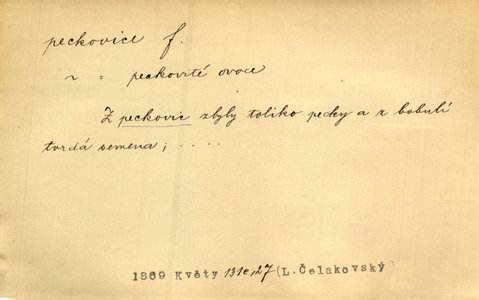 peckovice f.
~ " peckovité ovoce
Z peckovic zbyly toliko pecky a z bobulí
tvrdá semena; . . . .
1869 Květy 131c, 27 (L. Čelakovský)